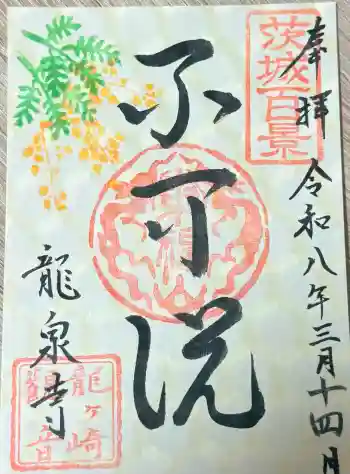 茨城百景
奉拝 令和八年三月十四日
不可説
龍泉寺
龍ヶ崎
観音